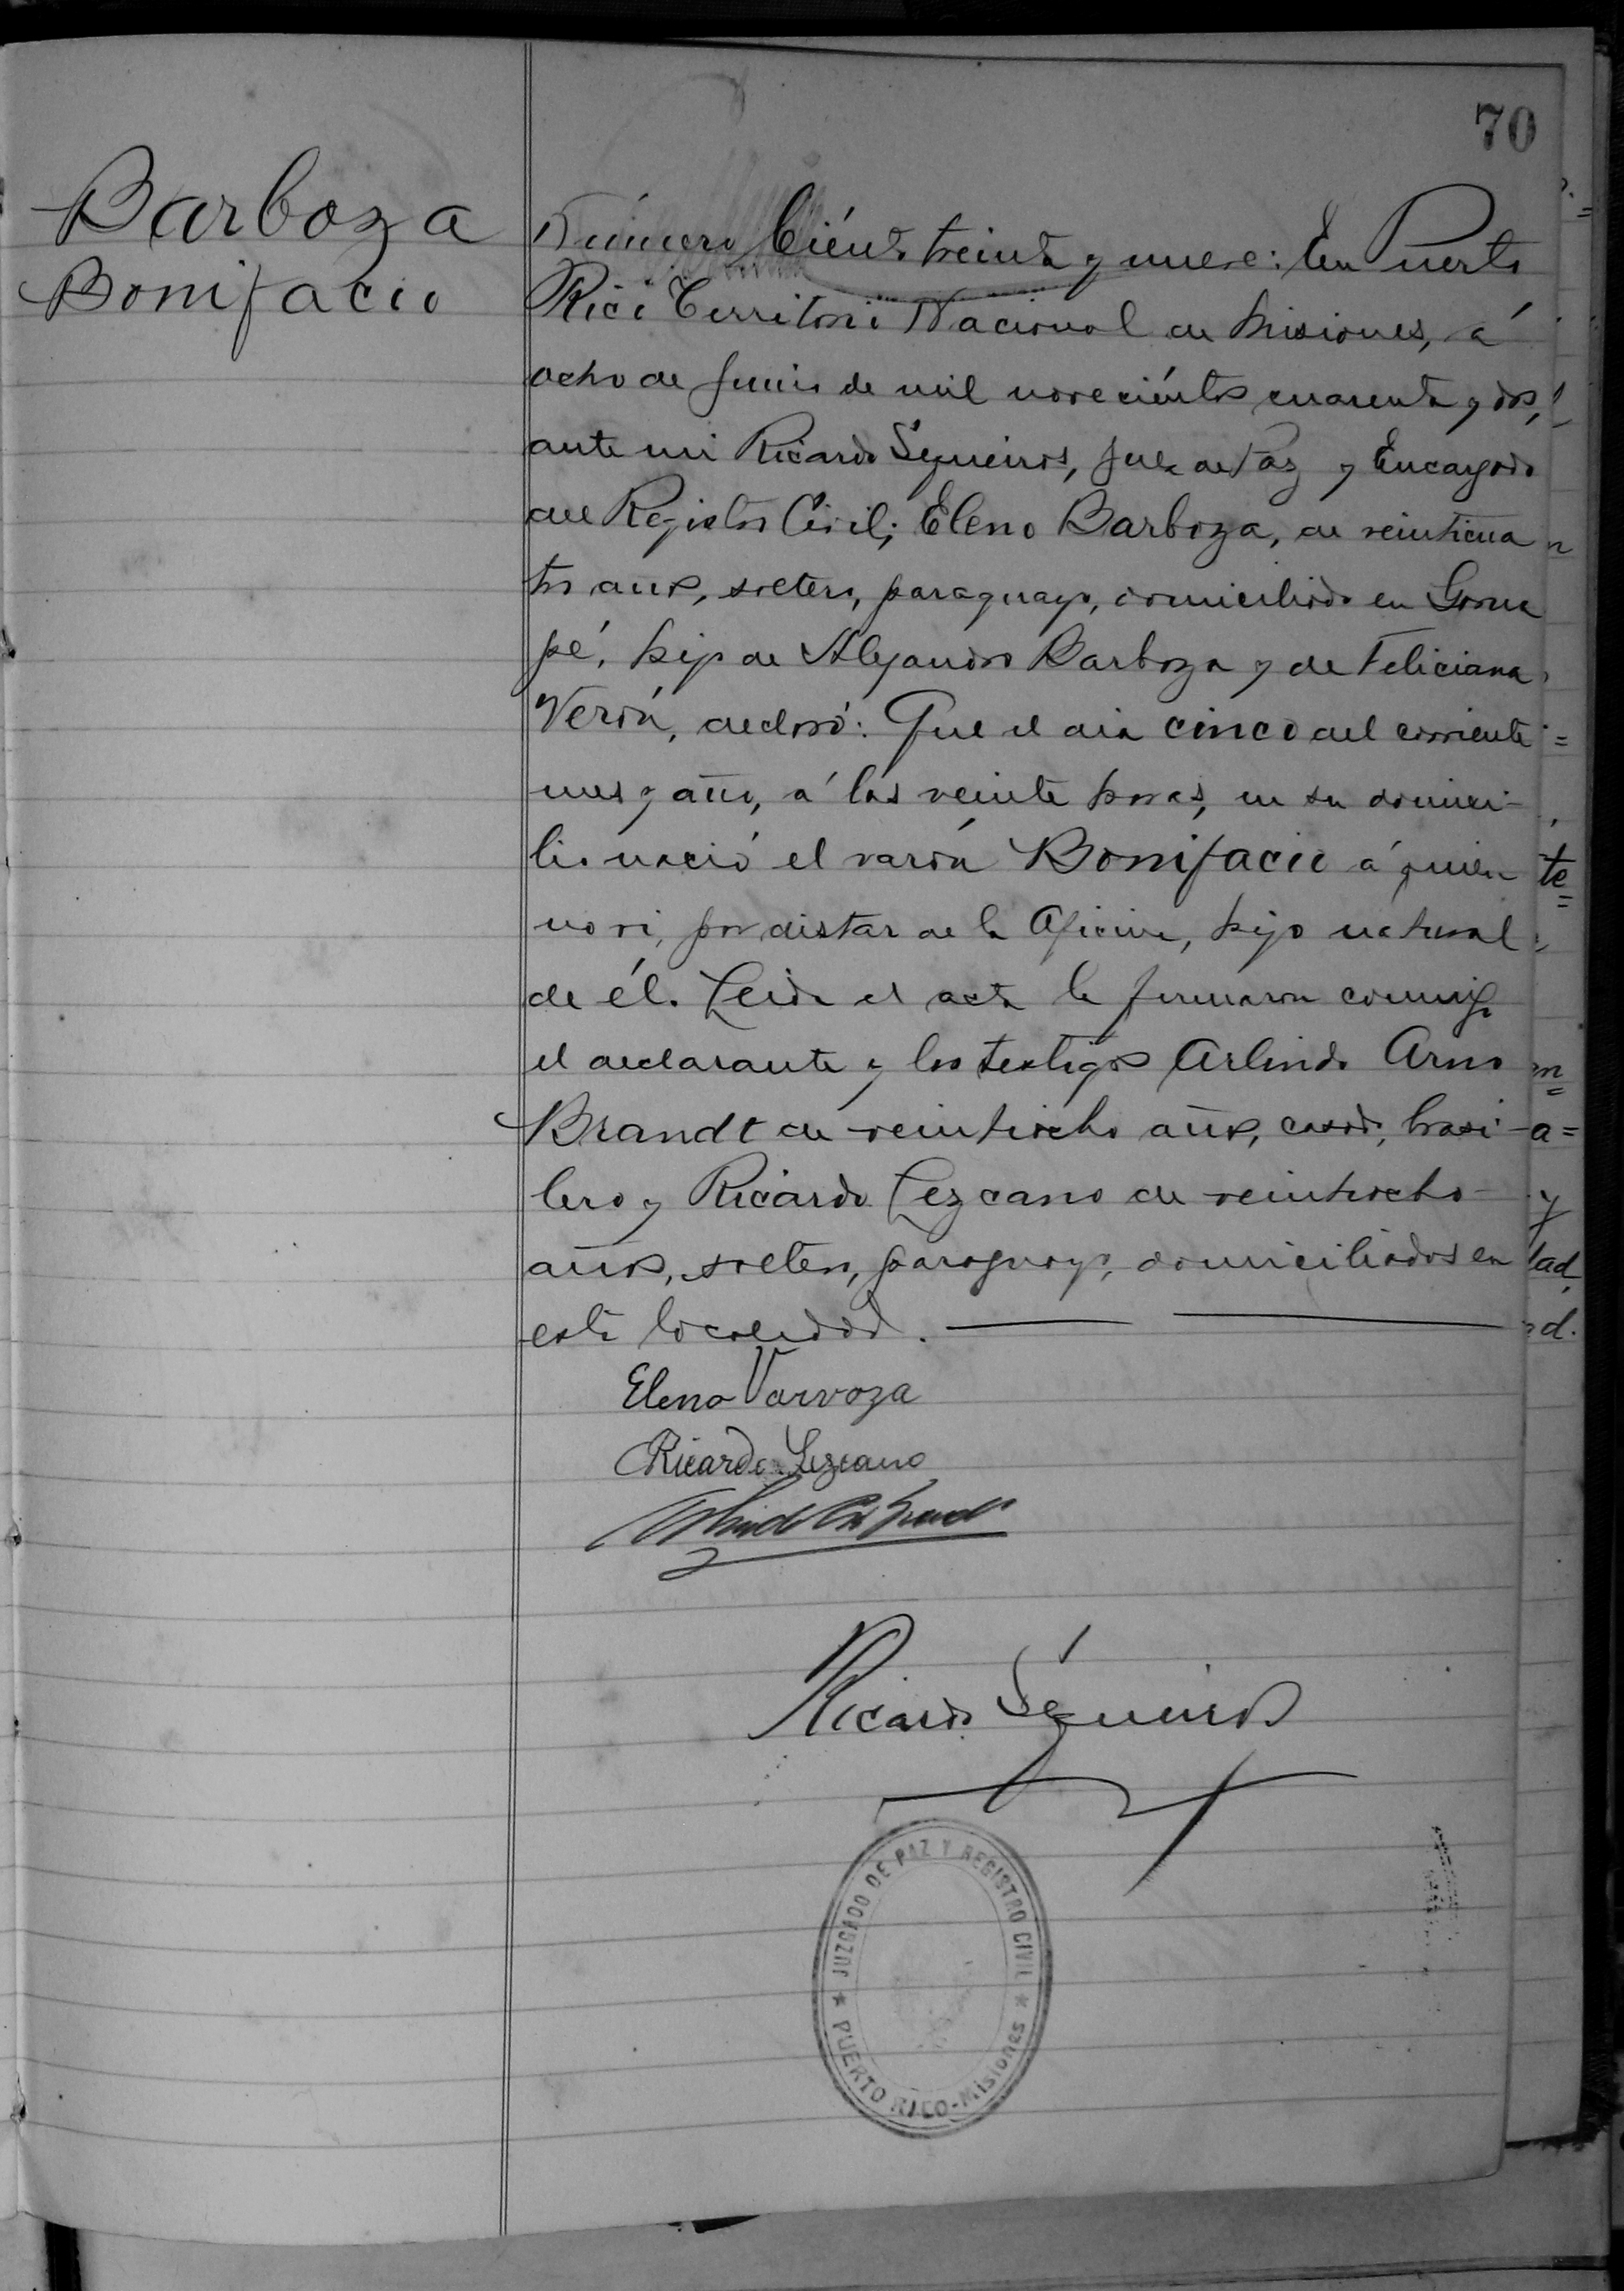 70
Barboza
Bonifacio
Número Ciento treinta y nueve: En Puerto
Rico Territorio Nacional de Misiones, á
ocho de Junio de mil novecientos cuarenta y dos,
ante mi Ricardo Sequeiros, Juez de Paz y Encargado
del Registro Civil; Eleno Barboza, de veinticua
tro años, soltero, paraguayo, domiciliado en Garua
pé, hijo de Alejandro Barboza y de Feliciana
Verón, declaró: Que el dia cinco del corriente
mes y año, á las veinte horas, en su domici-
lio nació el varón Bonifacio á quien
no vi, por distar de la Oficina, hijo natural
de él. Leida el acta la firmaron conmigo
el declarante y los testigos Arlindo Arno
Brandt de veintiocho años, casado, brasi-
lero y Ricardo Lezcano de veintiocho
años, soltero, paraguayo, domiciliados en
esta localidad.
Eleno Varvoza
Ricardo Lezcano
Ricardo Sequeiros
JUZGADO DE PAZ Y REGISTRO CIVIL
PUERTO RICO-MISIONES